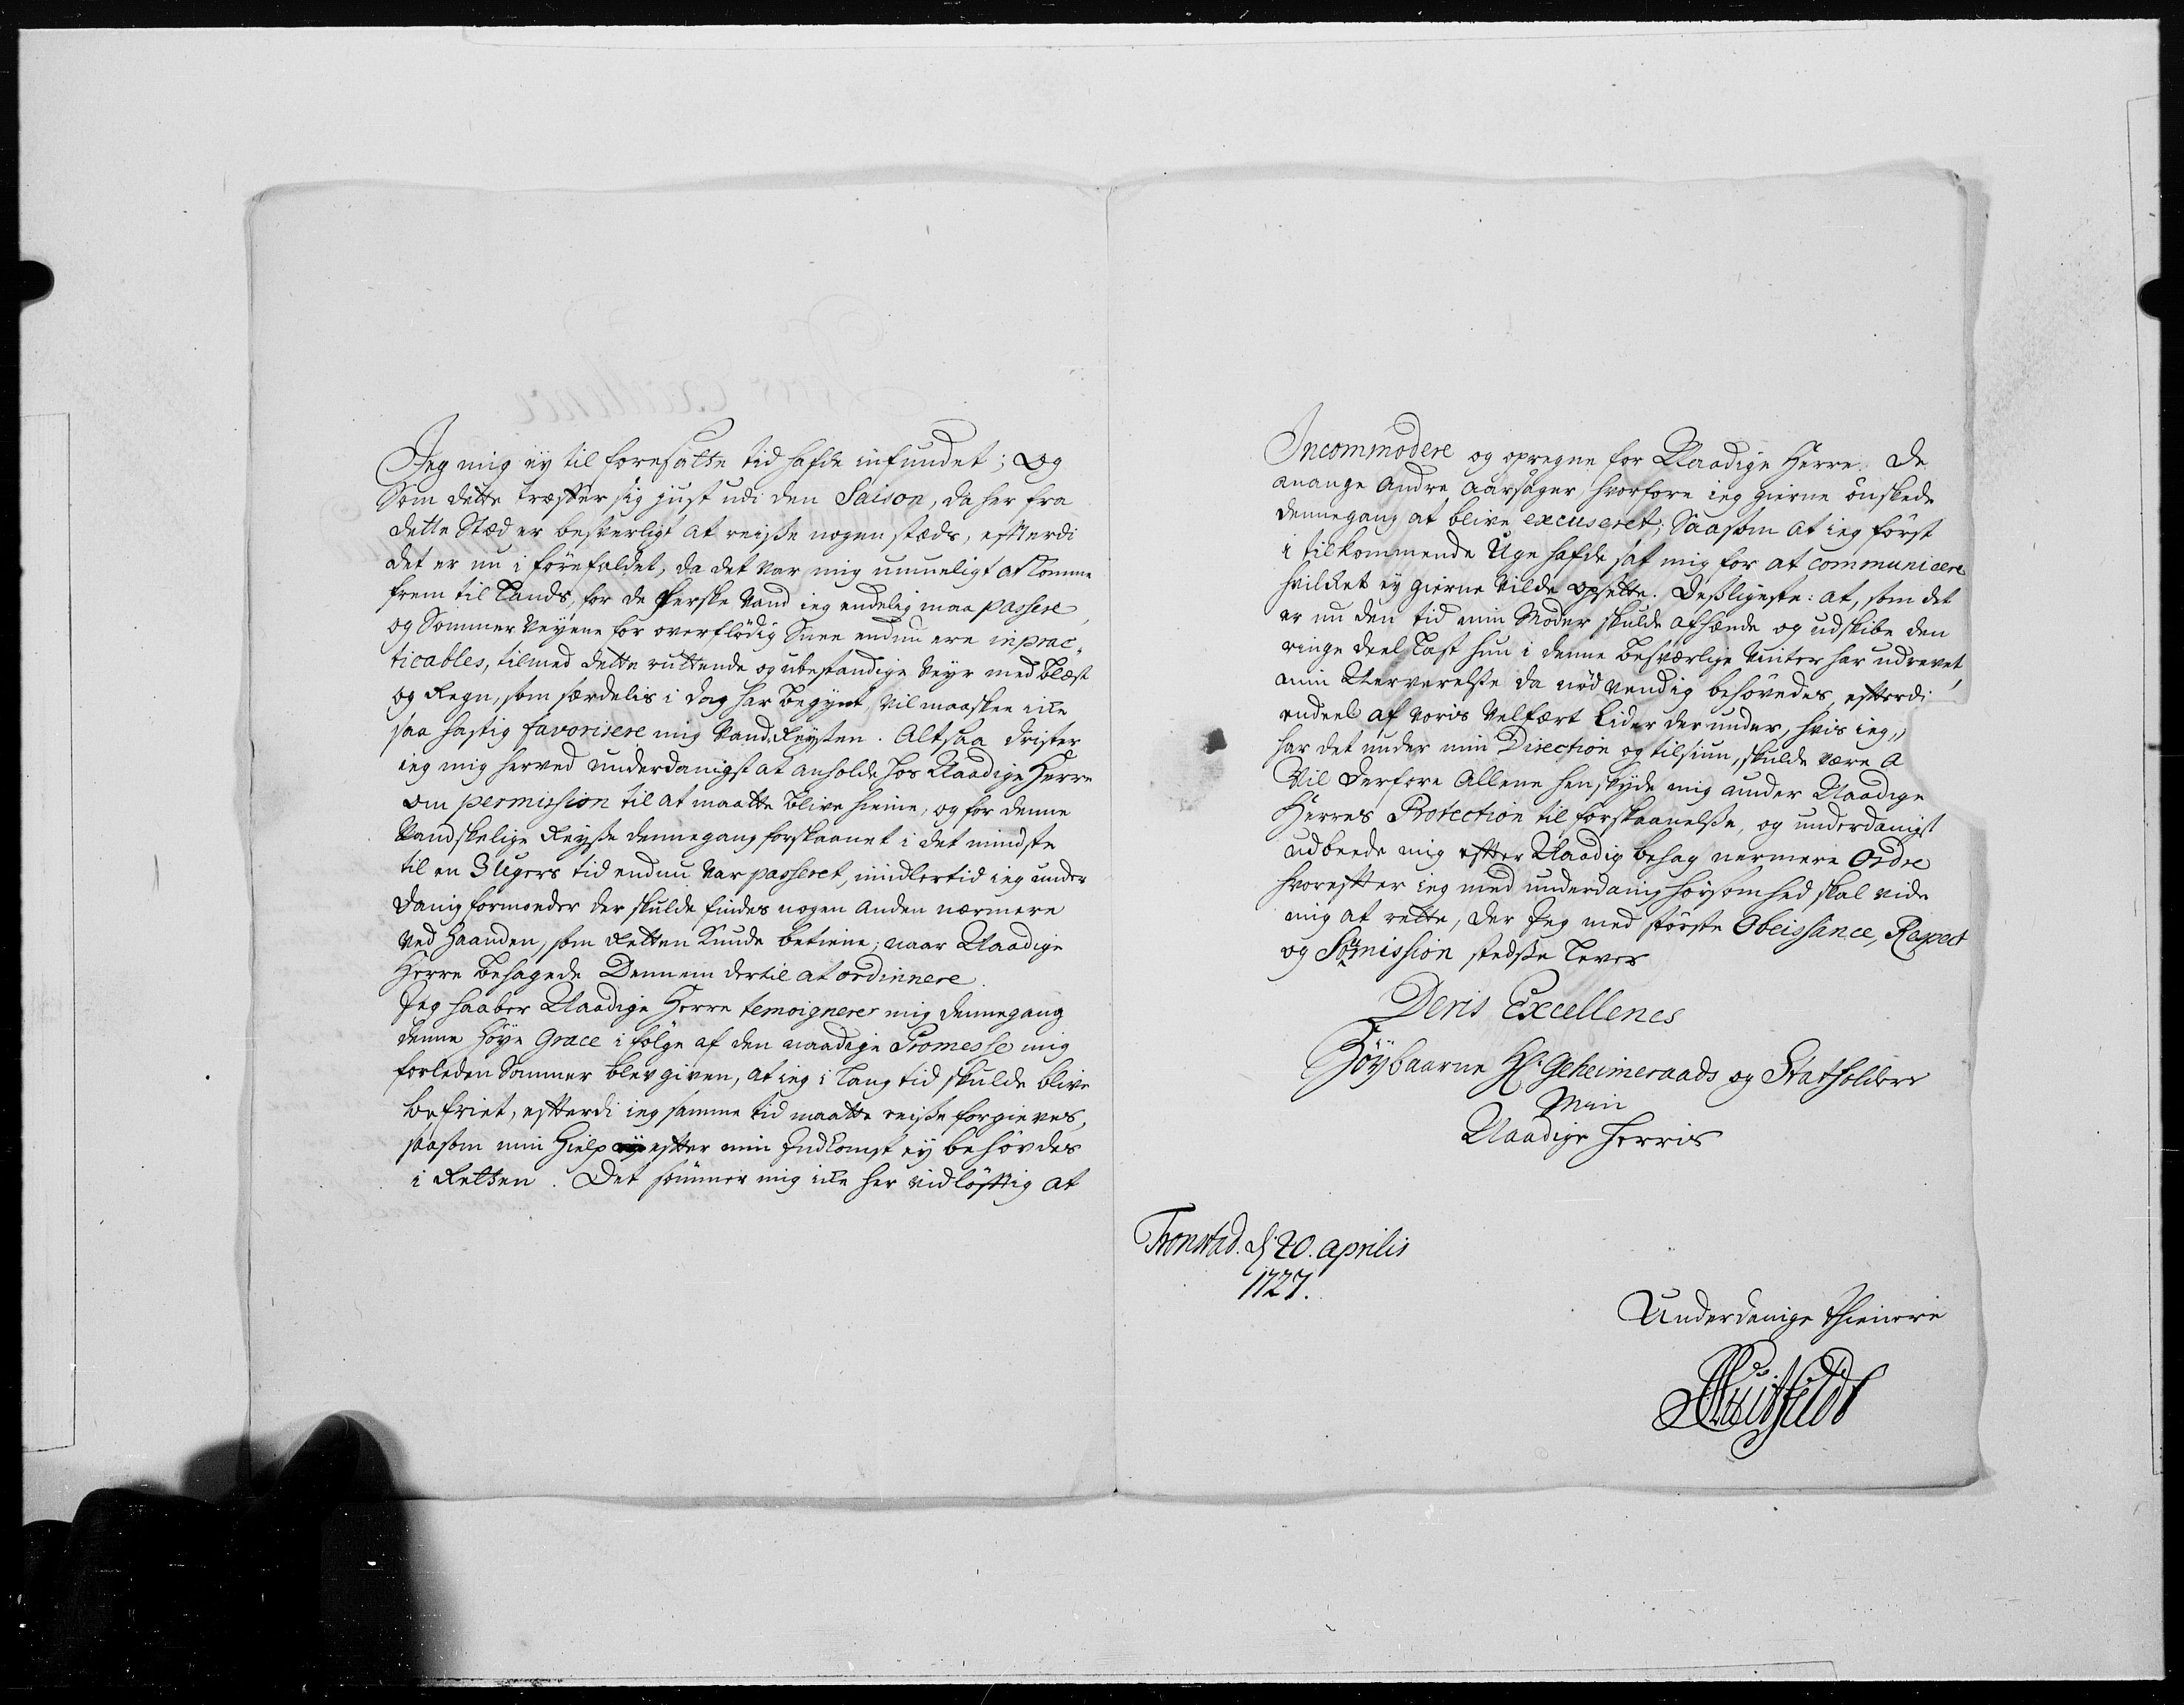 Jeg mig ey til foresatte tid hafde infundet; Og
Som dette træffer sig just udi den Saison, da her fra
dette Stæd er besverligt at reise nogen stæds, efterdi
det er nu i förefaldet, da det var mig umueligt at komme
frem til Lands, for de ferske Vand ieg endelig maa passere,
og Sommer Veyene for overflödig Snee endnu ere inprac,,
ticables, tilmed dette ruttende og ubestandige Veyr med Blæst
og Regn, som særdelis i dag har begynt, vil maaskee icke
saa hastig favorisere mig Vand Reysen. Altsaa drister
ieg mig herved underdanigst at anholde hos Naadige Herre
om permission til at maatte blive hieme, og for denne
Vandskelige Reyse dennegang forskaanet i det mindste
til en 3 Ugers tid endnu var passeret, imidlertid ieg under
danig formoder der skulde findes nogen anden nærmere
ved Haanden, som Retten kunde betiene; naar Naadige
Herre behagede Dennem dertil at ordinnere.
Jeg haaber Naadige Herre temoignerer mig dennegang
denne Höye Grace i fölge af den naadige Promesse mig
forleden Sommer blev given, at ieg i lang tid skulde blive
befriet, efterdi ieg samme tid maatte reise forgieves,
saasom min Hielp efter min Indkomst ey behövdes
i Retten. Det sömmer mig icke her vidlöftig at
Incommodere og opregne for Naadige Herre de
mange Andre aarsager, hvorfore ieg gierne önskede
dennegang at blive excuseret; Saasom at ieg först
i tilkommende Uge hafde sat mig for at communicere
hvilket ey gierne vilde opsette. Desligeste: at, som det
er nu den tid min Moder skulde afsende og udskibe den
ringe deel Last hun i denne besværlige Vinter har udrevet,
min Nerverelse da nödvendig behövedes, efterdi
endeel af voris Velfært Lider derunder, hvis ieg,,
har det under min Direction og tilsiun, skulde være a
Vil derfore Allene henskyde mig under Naadige
Herres Protection til forskaanelse, og underdanigst
udbeede mig efter Naadig behag nermere Ordre
hvorefter ieg med underdanig hörsomhed skal vide
mig at rette, der Jeg med störste Obeissance, Respect
og Somission stedse lever
Deris Excellences
Höybaarne Hr. Geheimeraads og Statholders
Min
Naadige Herris
Tronstad. d. 20. aprilis
1727.
Underdanige thienere
Huitfeldt